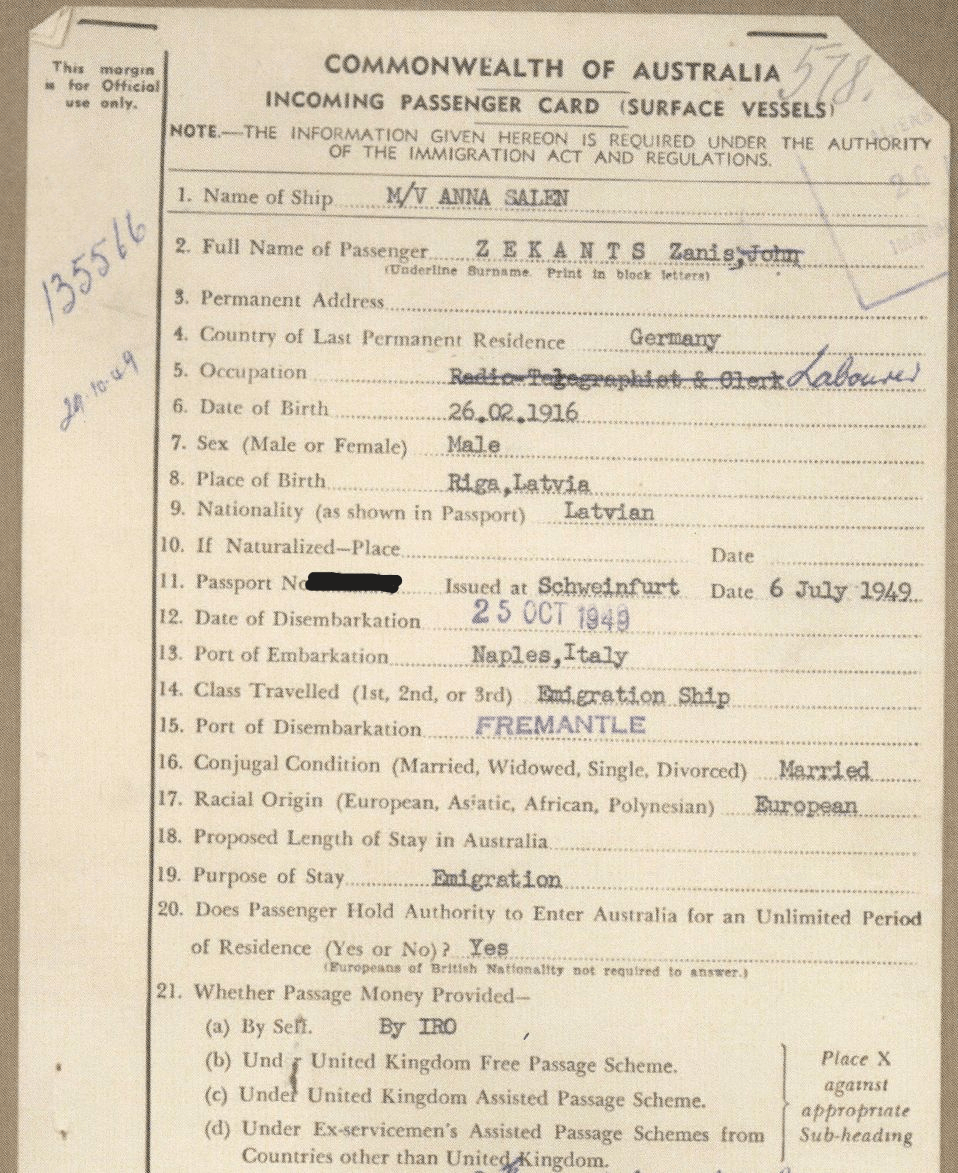 578.
This margin
is for Official
use only.
COMMONWEALTH OF AUSTRALIA
INCOMING PASSENGER CARD (SURFACE VESSELS)
NOTE.—THE INFORMATION GIVEN HEREON IS REQUIRED UNDER THE AUTHORITY
OF THE IMMIGRATION ACT AND REGULATIONS.
1. Name of Ship M/V ANNA SALEN
2. Full Name of Passenger ZEKANTS Zanis, John
(Underline Surname. Print in block letters)
135516
3. Permanent Address
4. Country of Last Permanent Residence Germany
5. Occupation Radio-Telegraphist & Clerk Labourer
29.10.49
6. Date of Birth 26.02.1916
7. Sex (Male or Female) Male
8. Place of Birth Riga, Latvia
9. Nationality (as shown in Passport) Latvian
10. If Naturalized—Place Date
11. Passport No Issued at Schweinfurt Date 6 July 1949
12. Date of Disembarkation 25 OCT 1949
13. Port of Embarkation Naples, Italy
14. Class Travelled (1st, 2nd, or 3rd) Emigration Ship
15. Port of Disembarkation FREMANTLE
16. Conjugal Condition (Married, Widowed, Single, Divorced) Married
17. Racial Origin (European, Asiatic, African, Polynesian) European
18. Proposed Length of Stay in Australia
19. Purpose of Stay Emigration
20. Does Passenger Hold Authority to Enter Australia for an Unlimited Period
of Residence (Yes or No)? Yes
(Europeans of British Nationality not required to answer.)
21. Whether Passage Money Provided—
(a) By Self. By IRO
(b) Under United Kingdom Free Passage Scheme.
(c) Under United Kingdom Assisted Passage Scheme.
(d) Under Ex-servicemen's Assisted Passage Schemes from
Countries other than United Kingdom.
Place X
against
appropriate
Sub-heading